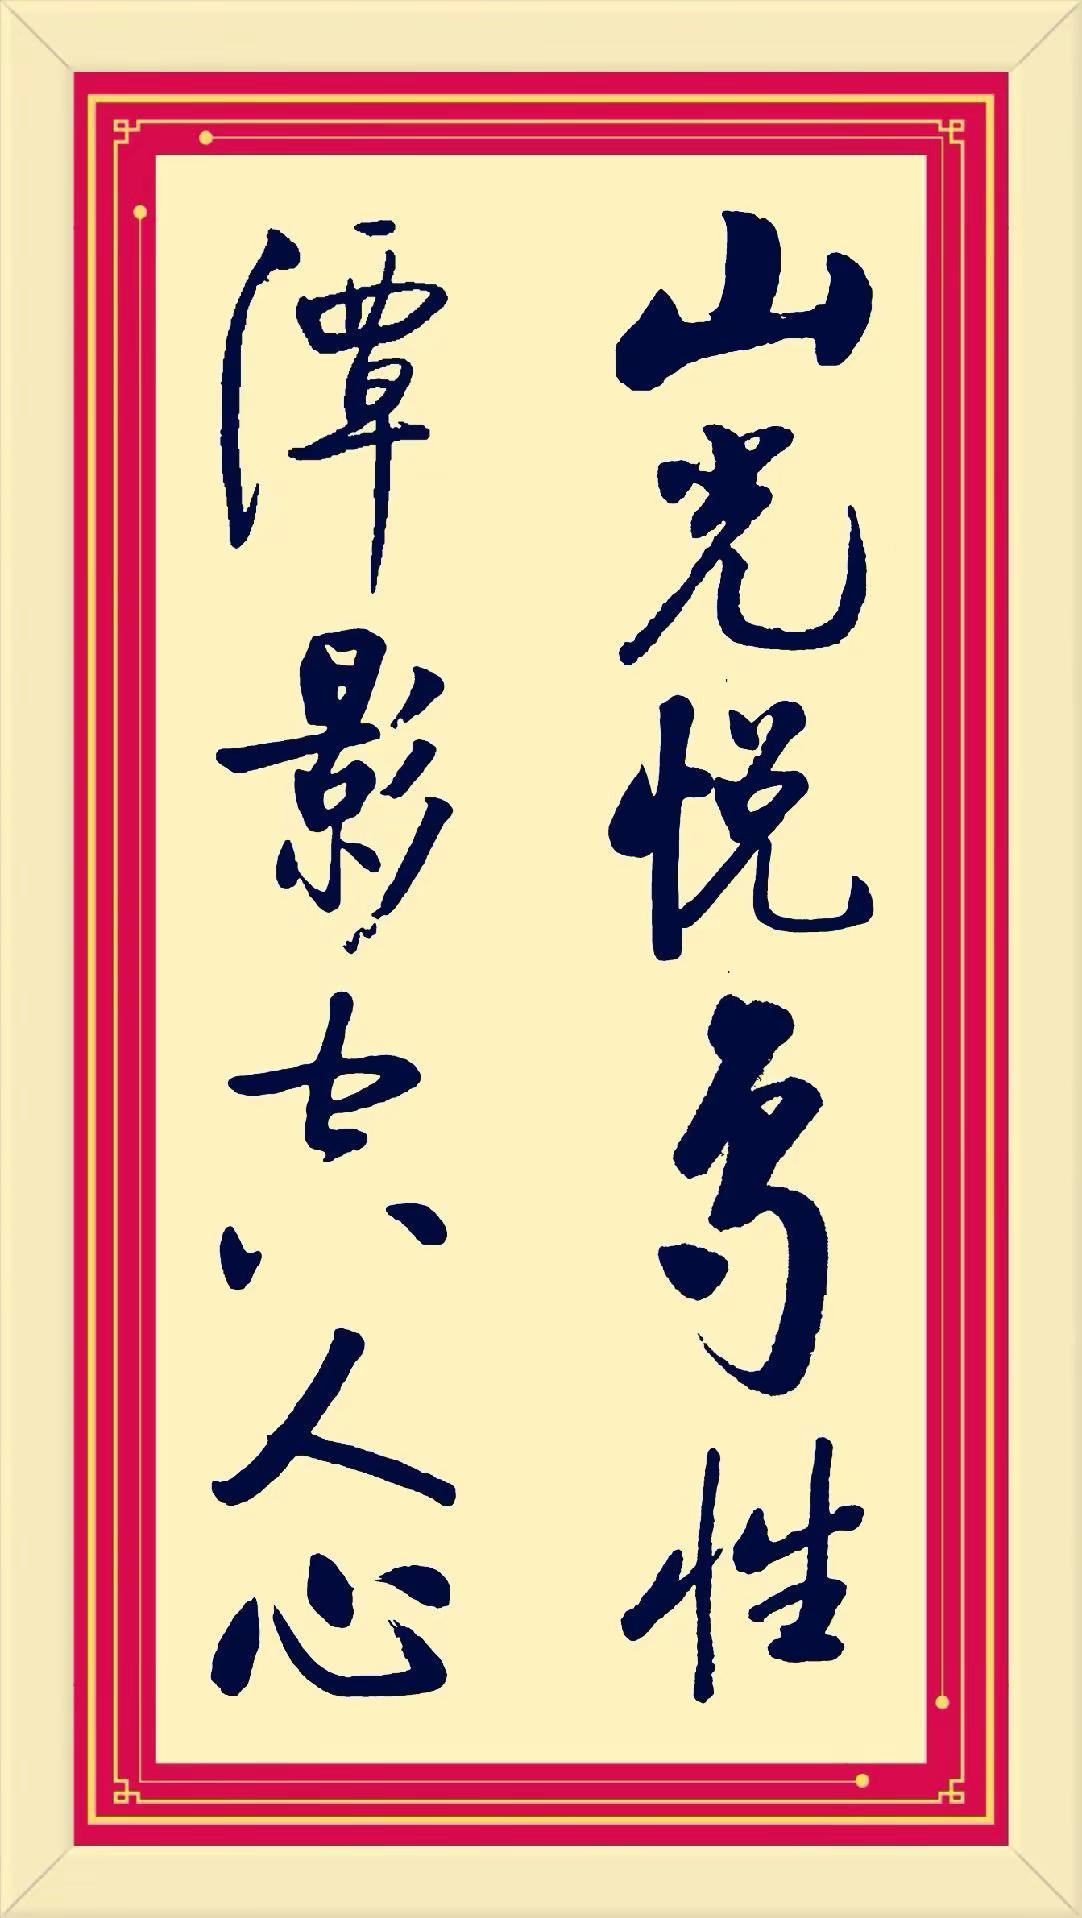 山光悦鸟性
潭影空人心